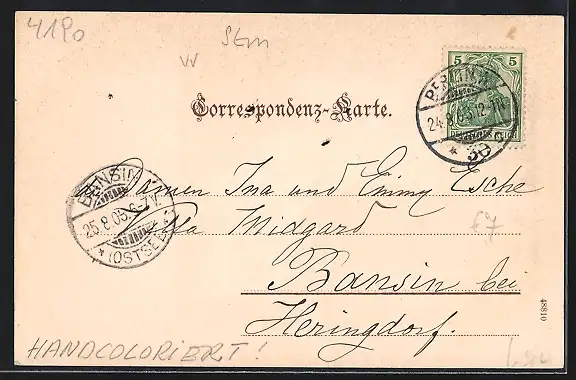 4190
Stm
VV
Correspondenz-Karte.
5 5
DEUTSCHES REICH
BERLIN
24.8.05.12-1N.
* 30
BANSIN
25.8.05.6-7V.
* (OSTSEEB.)
Damen Ina und Emmy Esche
Villa Midgard
Bansin bei
Heringsdorf.
48810
HANDCOLORIERT!